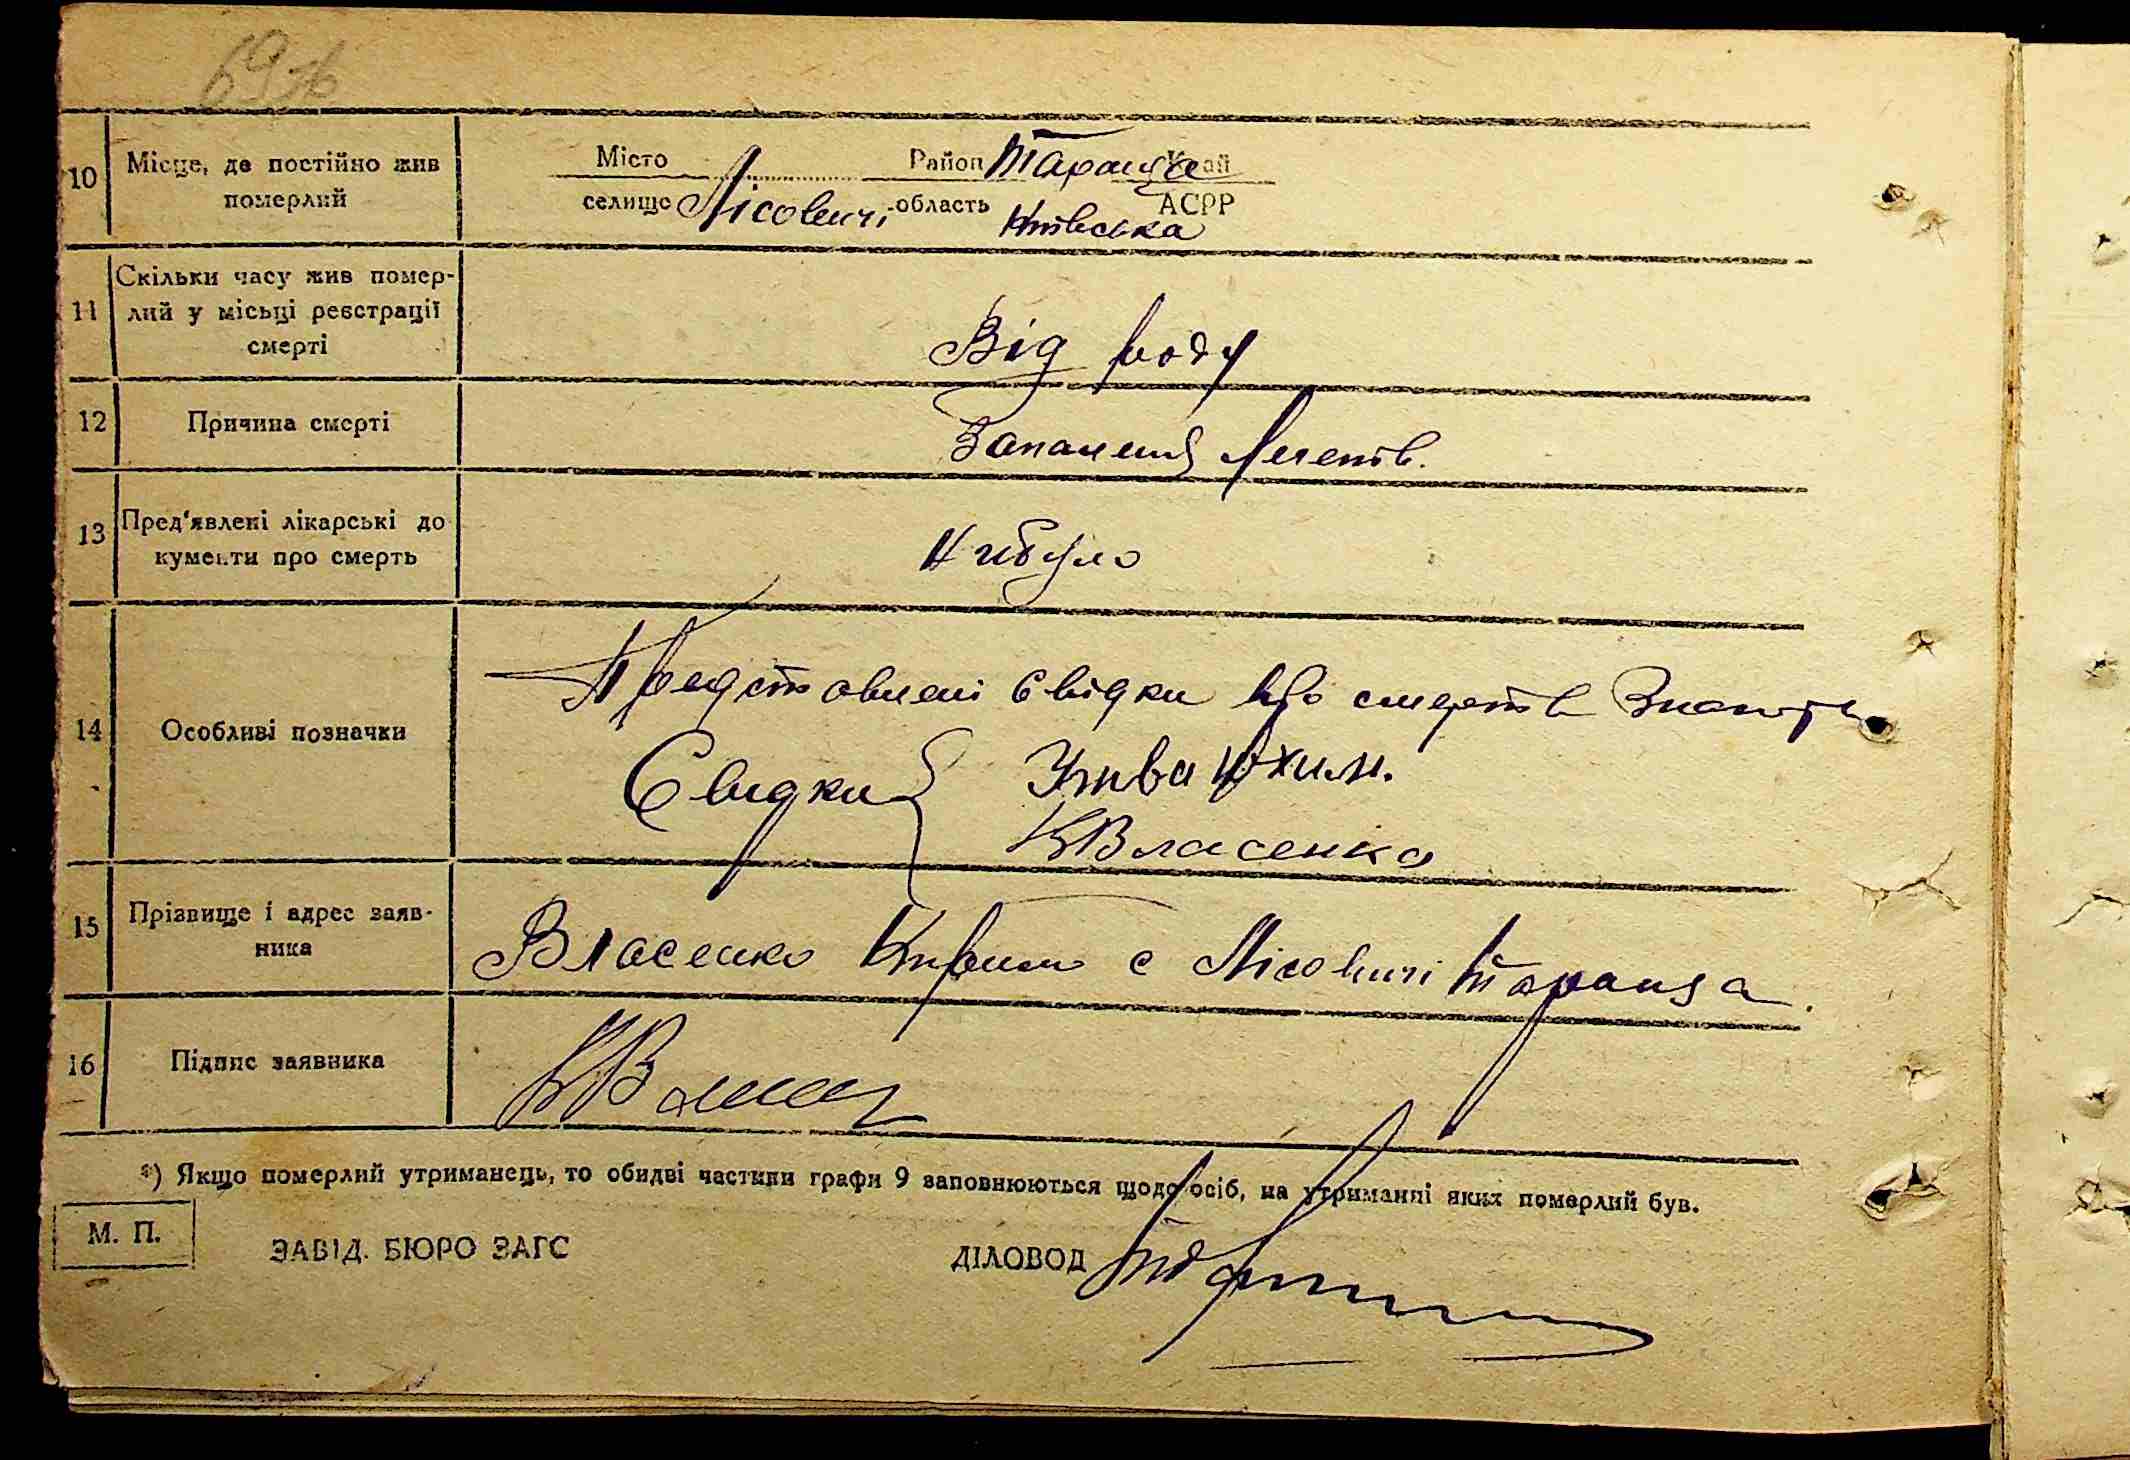 69
10 Місце, де постійно жив померлий
Місто Район Тараща Край
селище Лісовичі область Київська АСРР
11 Скільки часу жив помер-
лий у місьці реєстрації
смерті
Від роду
12 Причина смерті
Запаления Легенів.
13 Пред'явлені лікарські до
кументи про смерть
Нибуло
14 Особливі позначки
Представлені свідки що смерть
Свидки Ухим.
К Власенко
15 Прізвище і адрес заяв-
ника
Власенко с Лісовичі Тараща
16 Підпис заявника
*) Якщо померлий утриманець, то обидві частини графи 9 заповнюються щодо осіб, на утриманні яких померлий був.
М. П.
ЗАВІД. БЮРО ЗАГС
ДІЛОВОД